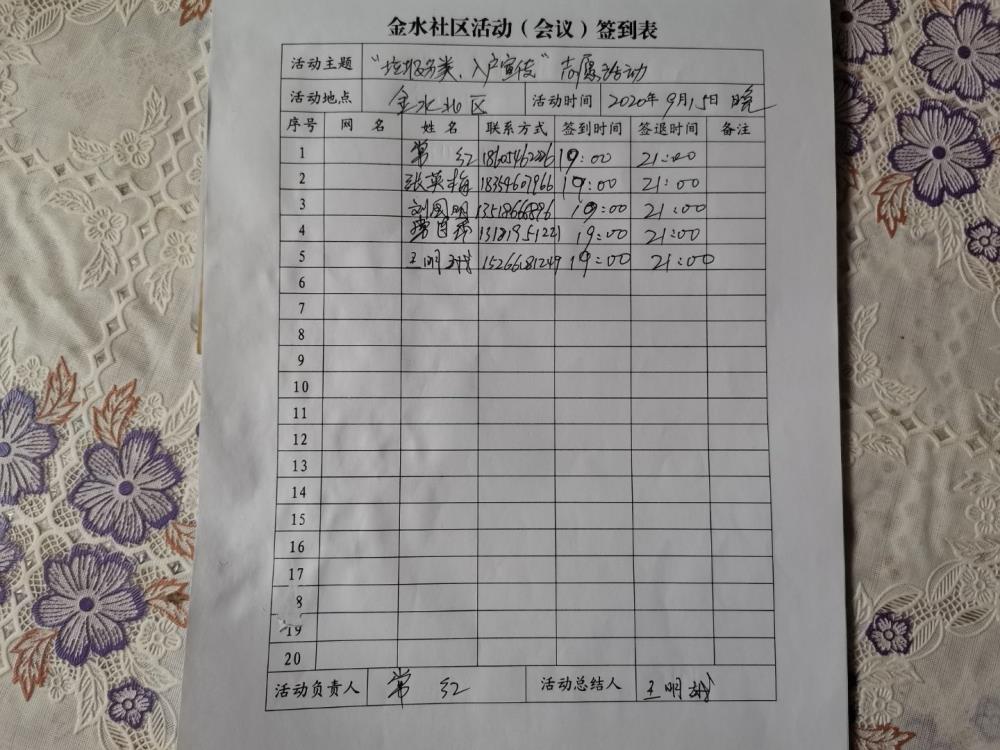 金水社区活动（会议）签到表
活动主题 "垃圾分类、入户宣传"志愿活动
活动地点 金水社区 活动时间 2020年9月15日 晚
序号 网 名 姓 名 联系方式 签到时间 签退时间 备注
1 常 红 19:00 21:00
2 张英梅 18354607966 19:00 21:00
3 刘国明 13518666896 19:00 21:00
4 13181951221 19:00 21:00
5 王明 15266181249 19:00 21:00
6
7
8
9
10
11
12
13
14
15
16
17
8
19
20
活动负责人 常 红 活动总结人 王明